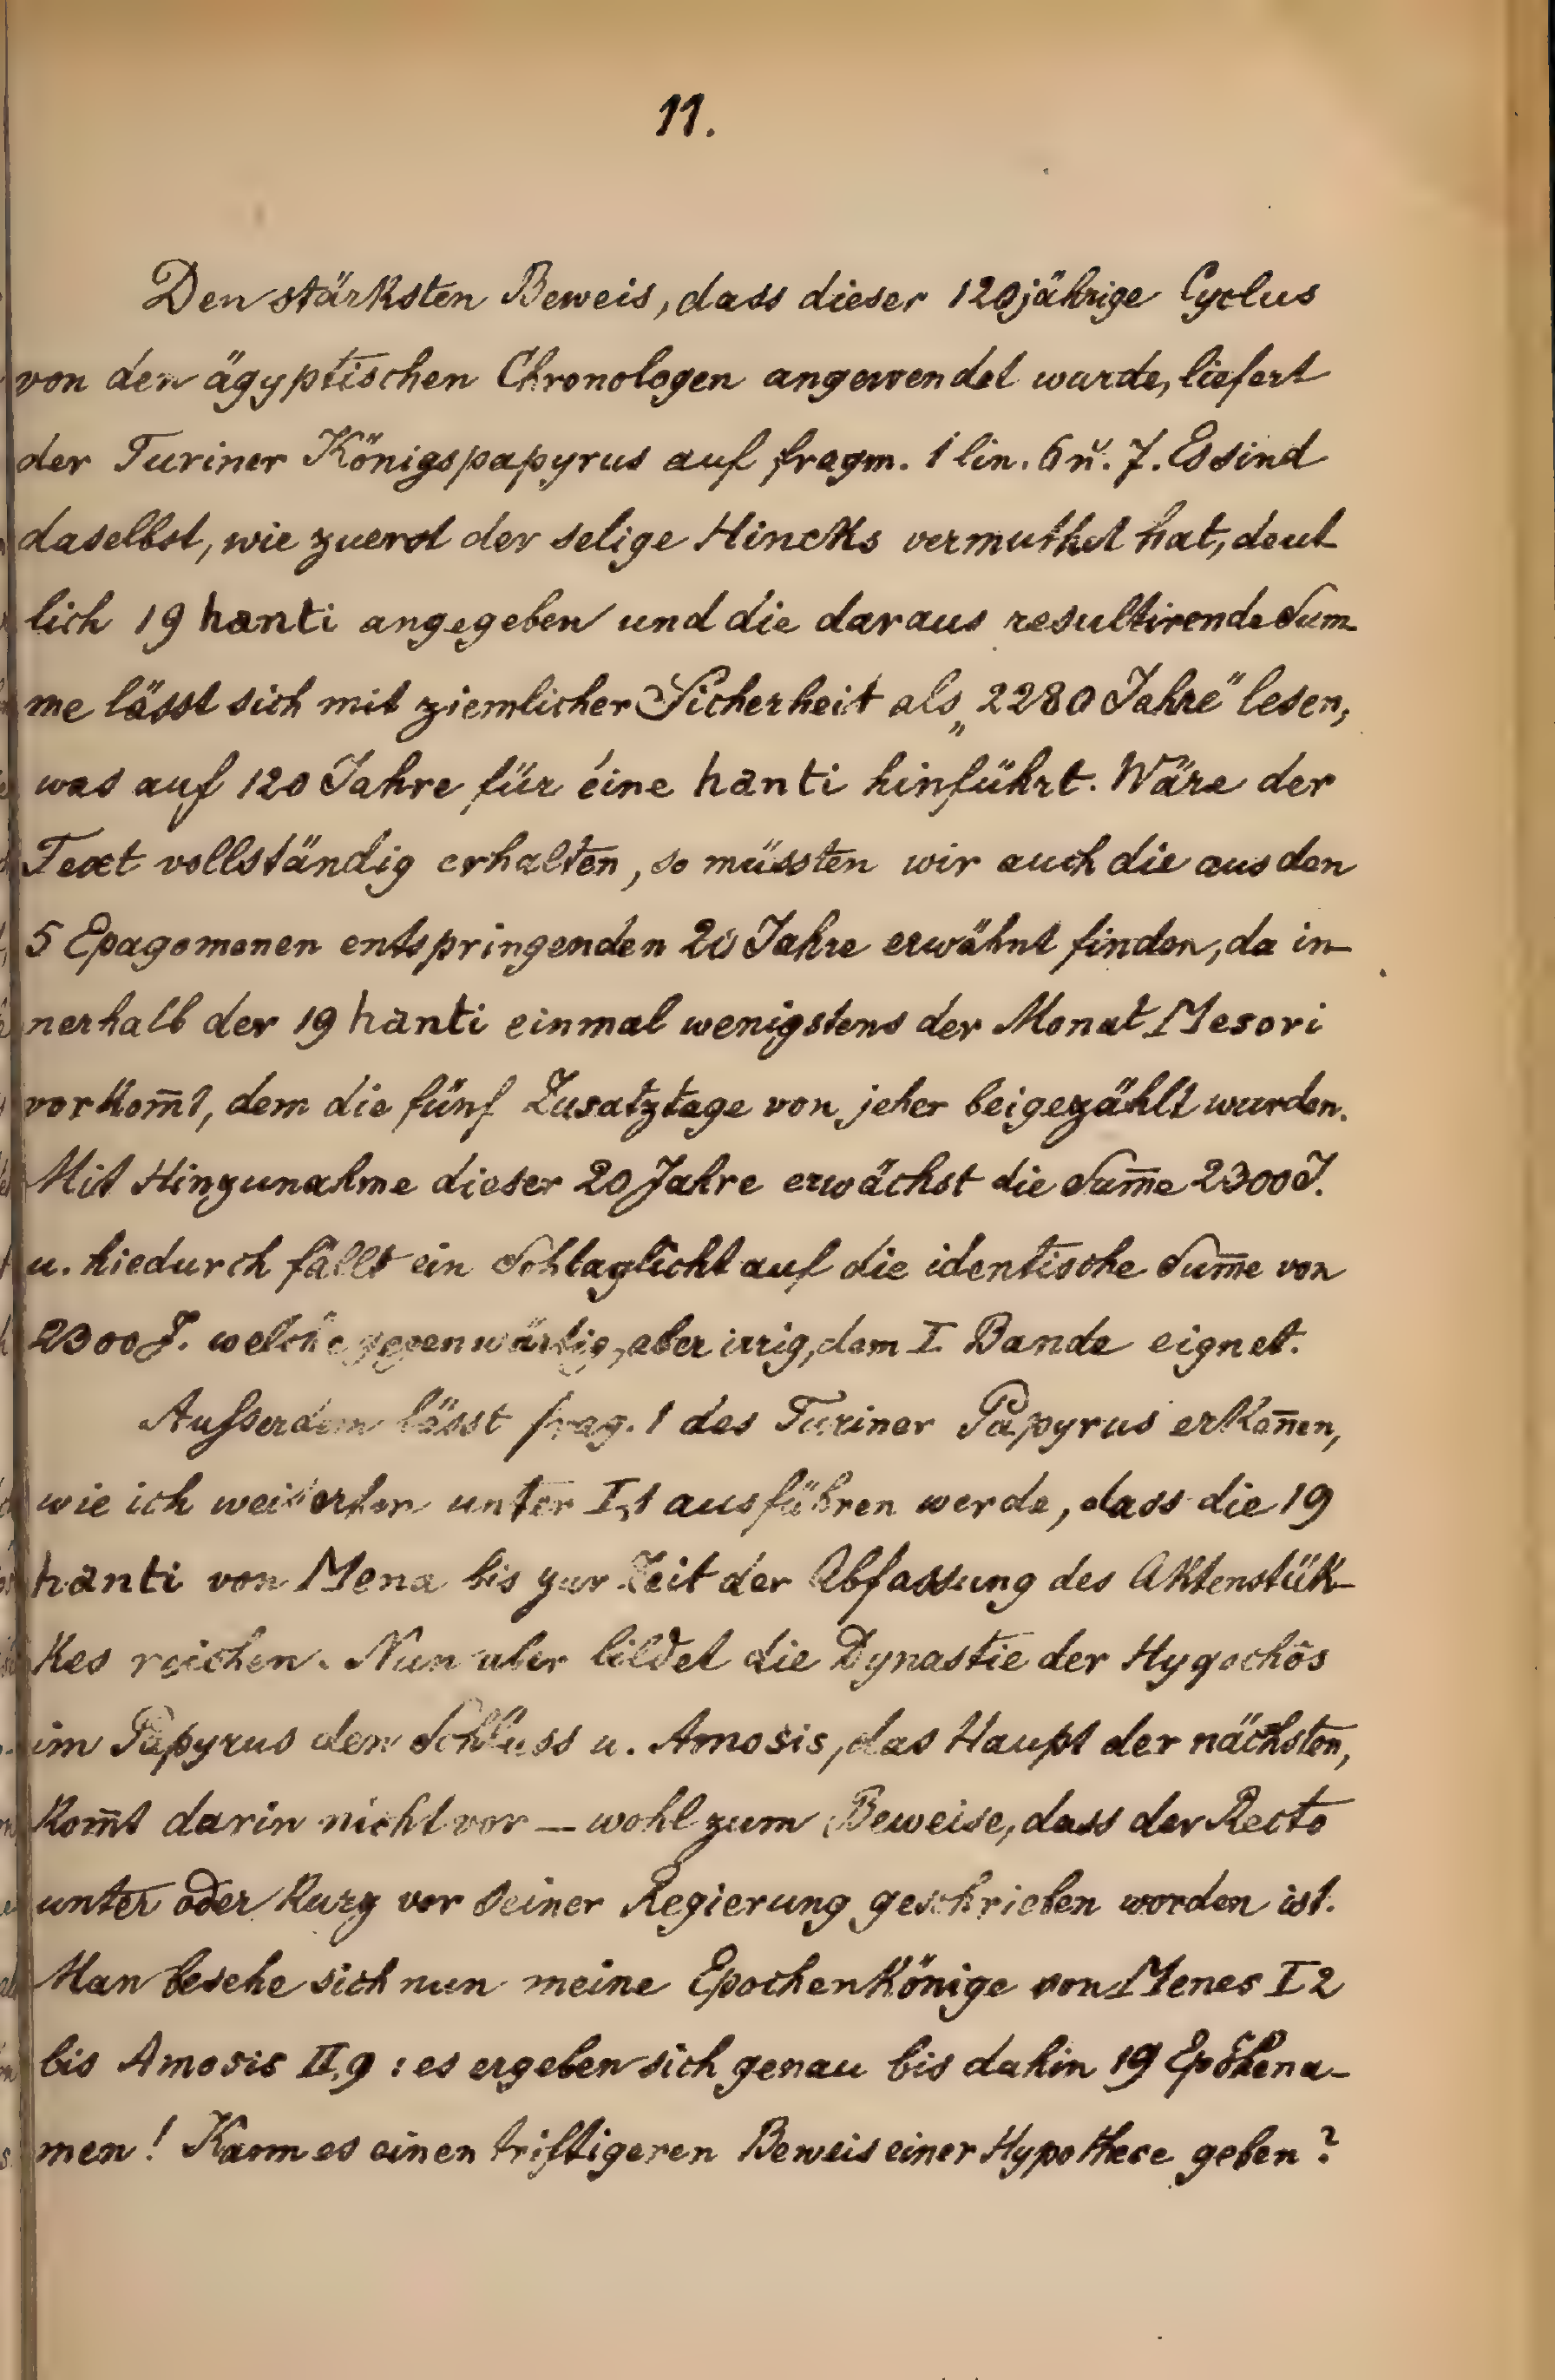 11.
Den stärksten Beweis, dass dieser 120jährige Cyclus
von den ägyptischen Chronologen angewendet wurde, liefert
der Turiner Königspapyrus auf fragm. 1 lin. 6 u. 7. Es sind
daselbst, wie zuerst der selige Hincks vermuthet hat, deut-
lich 19 hanti angegeben und die daraus resultirende Sum-
me lässt sich mit ziemlicher Sicherheit als „2280 Jahre" lesen,
was auf 120 Jahre für éine hanti hinführt. Wäre der
Text vollständig erhalten, so müssten wir auch die aus den
5 Epagomenen entspringenden 20 Jahre erwähnt finden, da in-
nerhalb der 19 hanti einmal wenigstens der Monat Mesori
vorkom̄t, dem die fünf Zusatztage von jeher beigezählt wurden.
Mit Hinzunahme dieser 20 Jahre erwächst die Sum̄e 2300 J.
u. hiedurch fällt ein Schlaglicht auf die identische Sum̄e von
2300 J. welche gegenwärtig, aber irrig, dem I. Bande eignet.
Ausserdem lässt frag. 1 des Turiner Papyrus erken̄en,
wie ich weiterhin unter I,1 ausführen werde, dass die 19
hanti von Mena bis zur Zeit der Abfassung des Aktenstük-
kes reichen. Nun aber bildet die Dynastie der Hyqschôs
im Papyrus den Schluss u. Amosis, das Haupt der nächsten,
kom̄t darin nicht vor — wohl zum Beweise, dass der Recto
unter oder kurz vor seiner Regierung geschrieben worden ist.
Man besehe sich nun meine Epochenkönige von Menes I 2
bis Amosis II,9 : es ergeben sich genau bis dahin 19 Epochena-
men! Kann es einen triftigeren Beweis einer Hypothese geben?